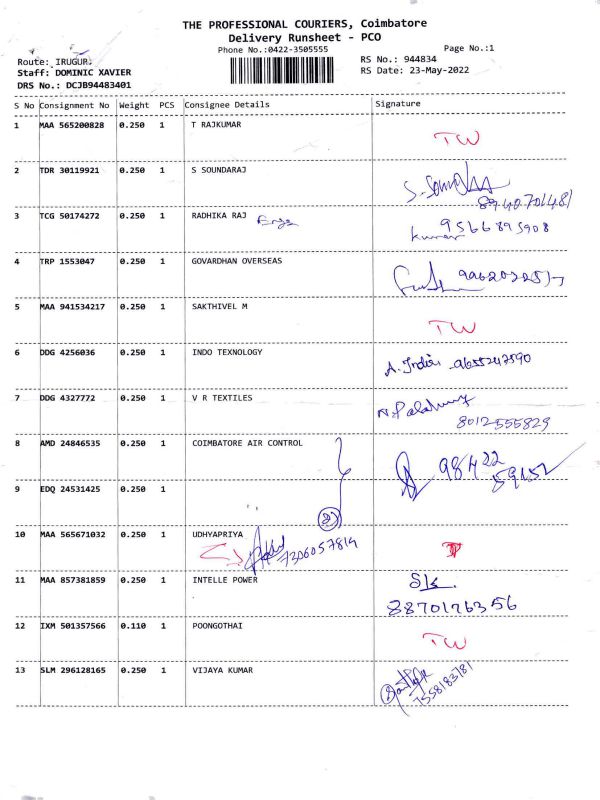 THE PROFESSIONAL COURIERS, Coimbatore
Delivery Runsheet - PCO
Phone No.:0422-3505555
Page No.:1
Route: IRUGUR
RS No.: 944834
Staff: DOMINIC XAVIER
RS Date: 23-May-2022
DRS No.: DCJB94483401
S No Consignment No Weight PCS Consignee Details Signature
1 MAA 565200828 0.250 1 T RAJKUMAR
TW
2 TDR 30119921 0.250 1 S SOUNDARAJ
8940701481
3 TCG 50174272 0.250 1 RADHIKA RAJ
Kumar 9566895908
4 TRP 1553047 0.250 1 GOVARDHAN OVERSEAS
5 MAA 941534217 0.250 1 SAKTHIVEL M
TW
6 DDG 4256036 0.250 1 INDO TEXNOLOGY
9655242590
7 DDG 4327772 0.250 1 V R TEXTILES
8012555829
8 AMD 24846535 0.250 1 COIMBATORE AIR CONTROL
98422
59152
9 EDQ 24531425 0.250 1
10 MAA 565671032 0.250 1 UDHYAPRIYA
7306057814
11 MAA 857381859 0.250 1 INTELLE POWER
8870176356
12 IXM 501357566 0.110 1 POONGOTHAI
TW
13 SLM 296128165 0.250 1 VIJAYA KUMAR
7558183781